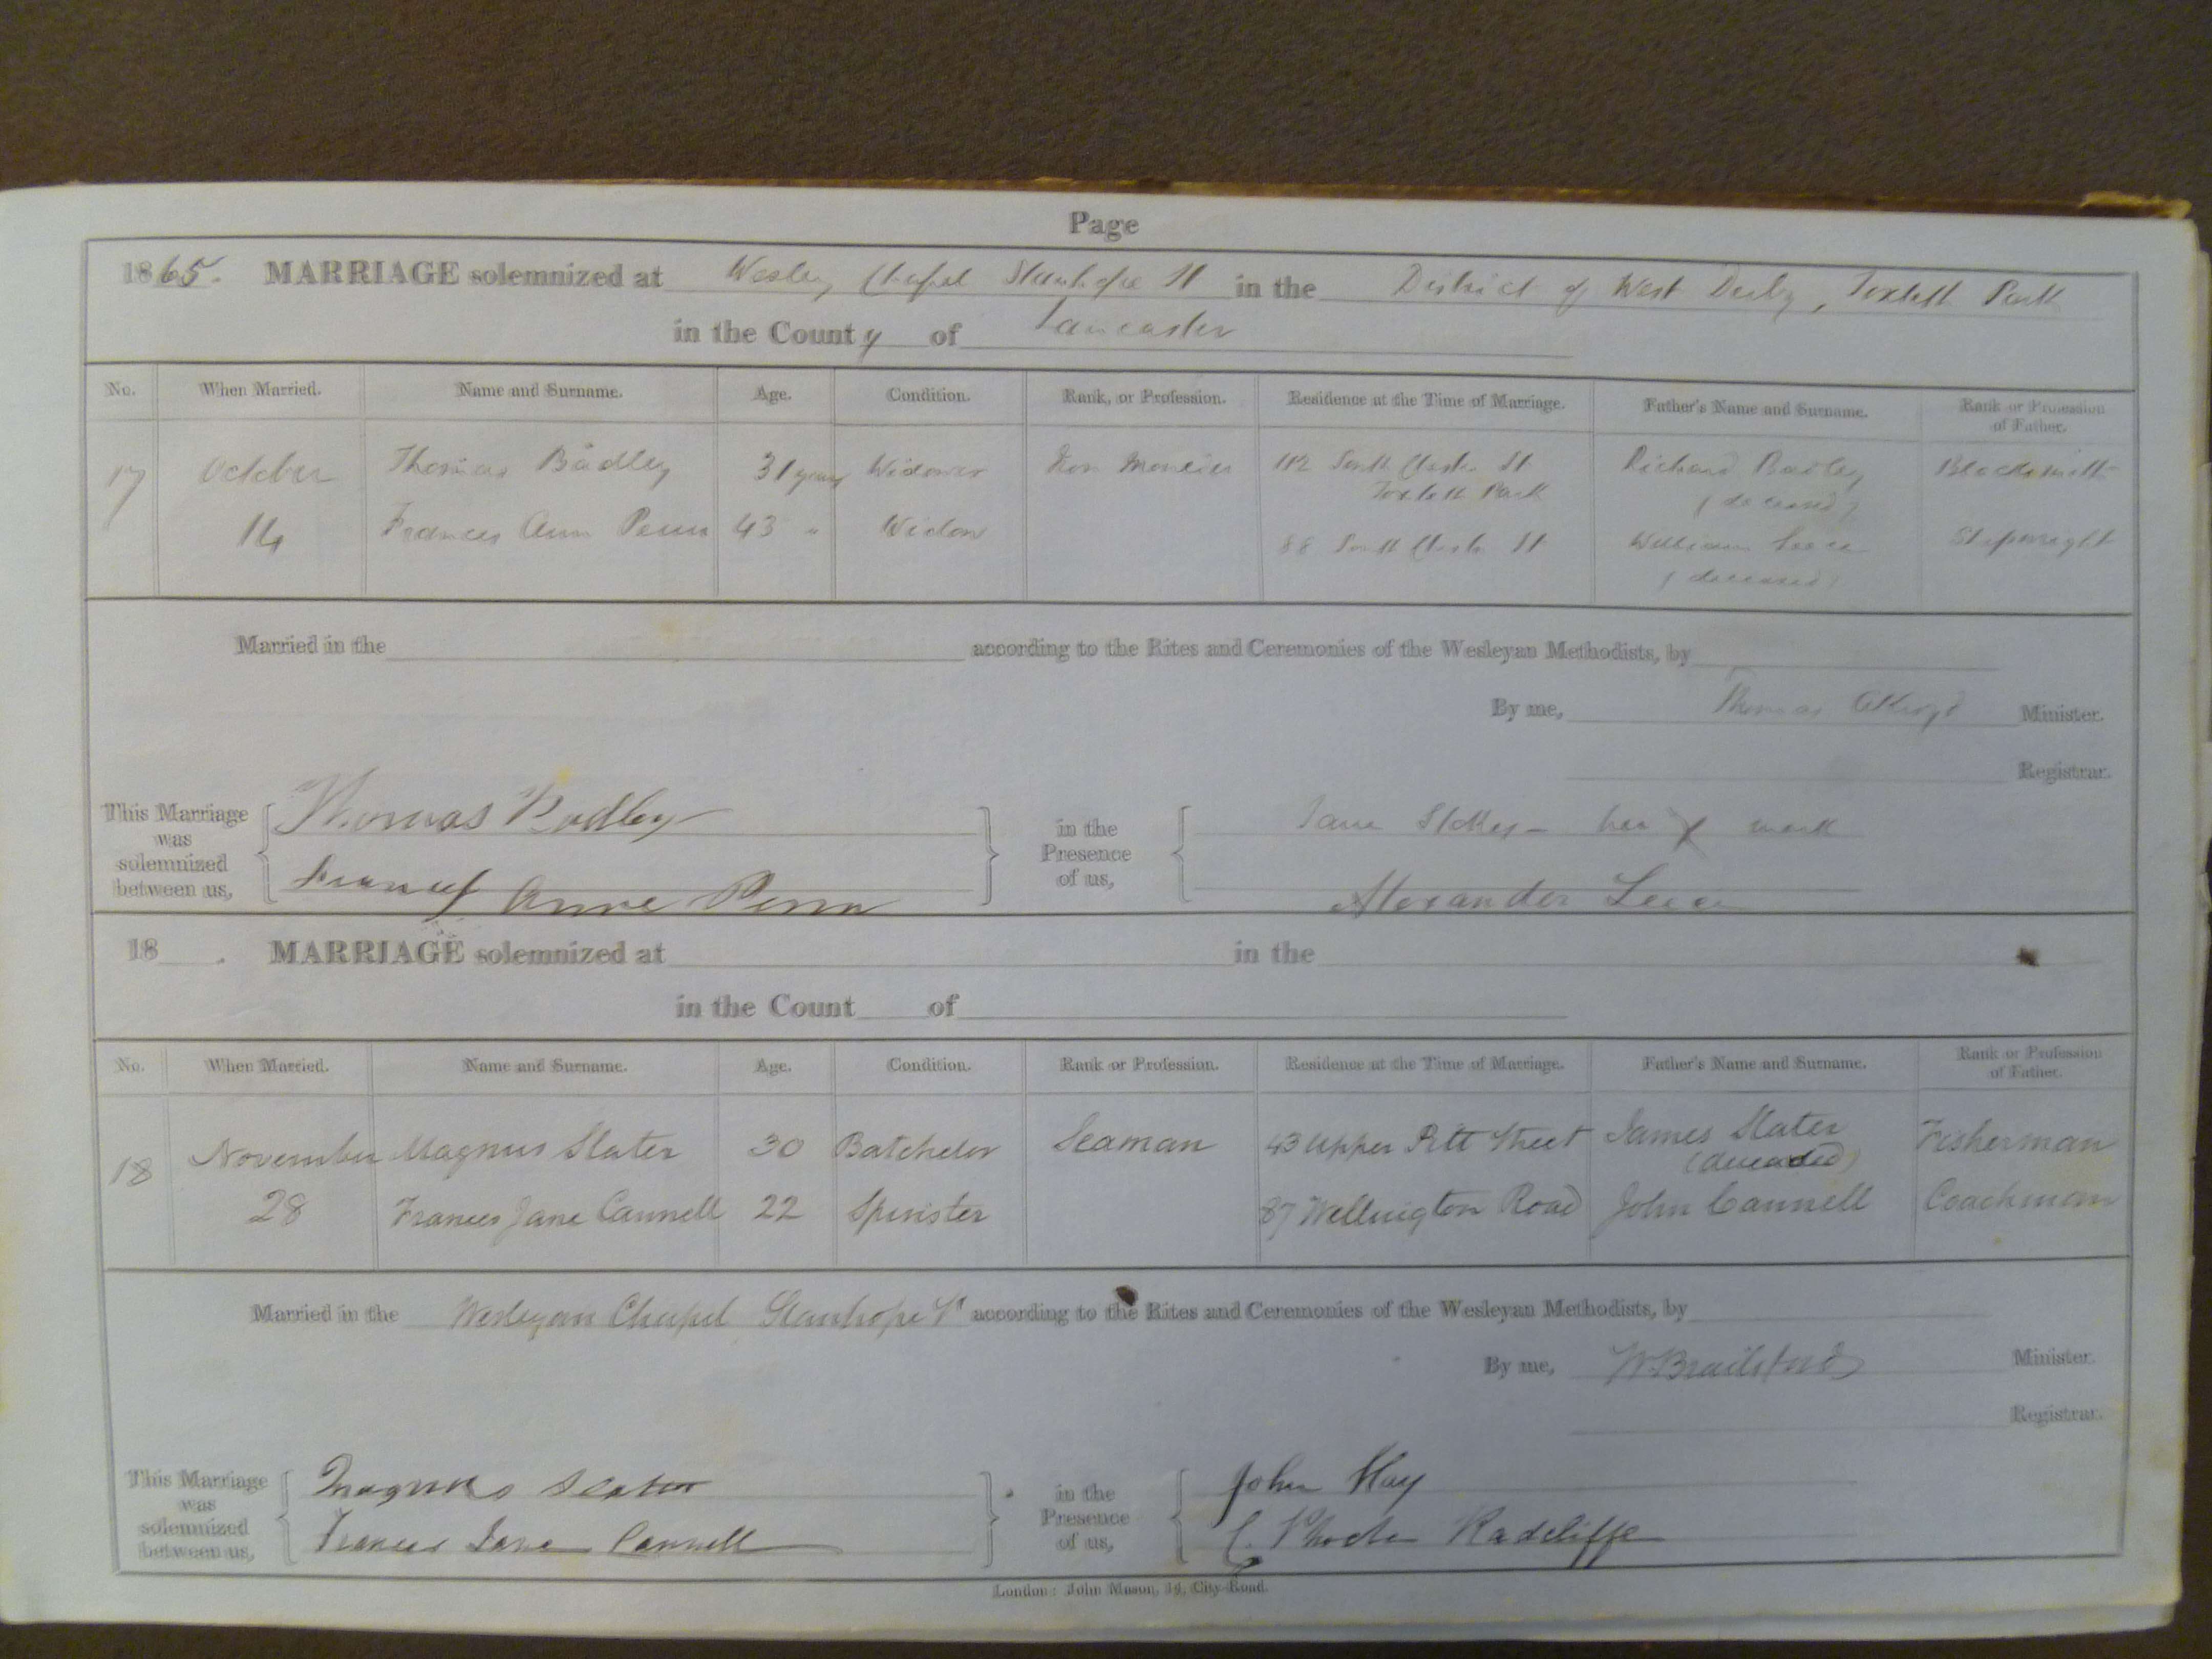 Page
1865. MARRIAGE solemnized at Wesley Chapel Stanhope St in the District of West Derby, Toxteth Park
in the County of Lancaster
No. When Married. Name and Surname. Age. Condition. Rank, or Profession. Residence at the Time of Marriage. Father's Name and Surname. Rank or Profession of Father.
17 October Thomas Badley 31 years Widower Iron Moulder 112 South Chester St Toxteth Park Richard Badley (deceased) Blacksmith
14 Frances Ann Penn 43 " Widow 88 South Chester St William Leece (deceased) Shipwright
Married in the according to the Rites and Ceremonies of the Wesleyan Methodists, by
By me, Thomas Akroyd Minister.
Registrar.
This Marriage was solemnized between us, Thomas Badley in the Presence of us, Jane Stokes - her X mark
Frances Anne Penn Alexander Leece
18 . MARRIAGE solemnized at in the
in the Count of
No. When Married. Name and Surname. Age. Condition. Rank or Profession. Residence at the Time of Marriage. Father's Name and Surname. Rank or Profession of Father.
18 November Magnus Slater 30 Batchelor Seaman 43 Upper Pitt Street James Slater (deceased) Fisherman
28 Frances Jane Cannell 22 Spinster 87 Wellington Road John Cannell Coachman
Married in the Wesleyan Chapel Stanhope St according to the Rites and Ceremonies of the Wesleyan Methodists, by
By me, W. Brailsford Minister.
Registrar.
This Marriage was solemnized between us, Magnus Slater in the Presence of us, John Hay
Frances Jane Cannell Phoebe Radcliffe
London: John Mason, 14, City-Road.